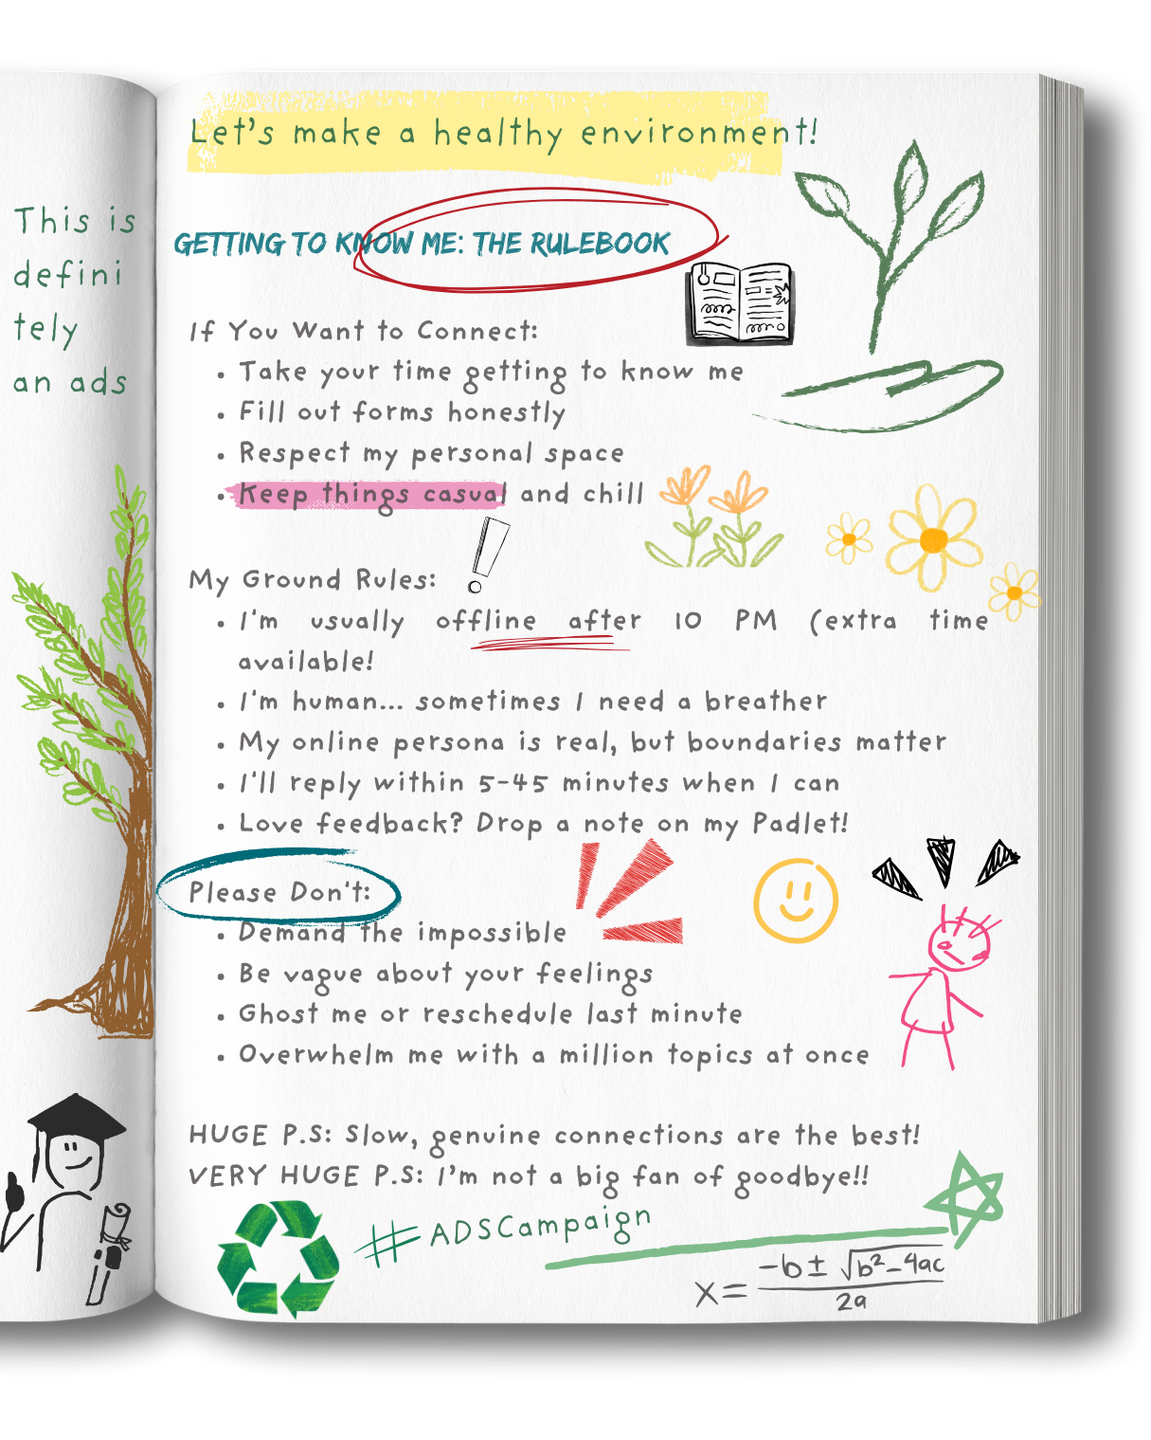 This is
defini
tely
an ads
Let's make a healthy environment!
GETTING TO KNOW ME: THE RULEBOOK
If You Want to Connect:
• Take your time getting to know me
• Fill out forms honestly
• Respect my personal space
• Keep things casual and chill
My Ground Rules:
• I'm usually offline after 10 PM (extra time
available!
• I'm human... sometimes I need a breather
• My online persona is real, but boundaries matter
• I'll reply within 5-45 minutes when I can
• Love feedback? Drop a note on my Padlet!
Please Don't:
• Demand the impossible
• Be vague about your feelings
• Ghost me or reschedule last minute
• Overwhelm me with a million topics at once
HUGE P.S: Slow, genuine connections are the best!
VERY HUGE P.S: I'm not a big fan of goodbye!!
#ADSCampaign
x = -b ± √b²-4ac
2a